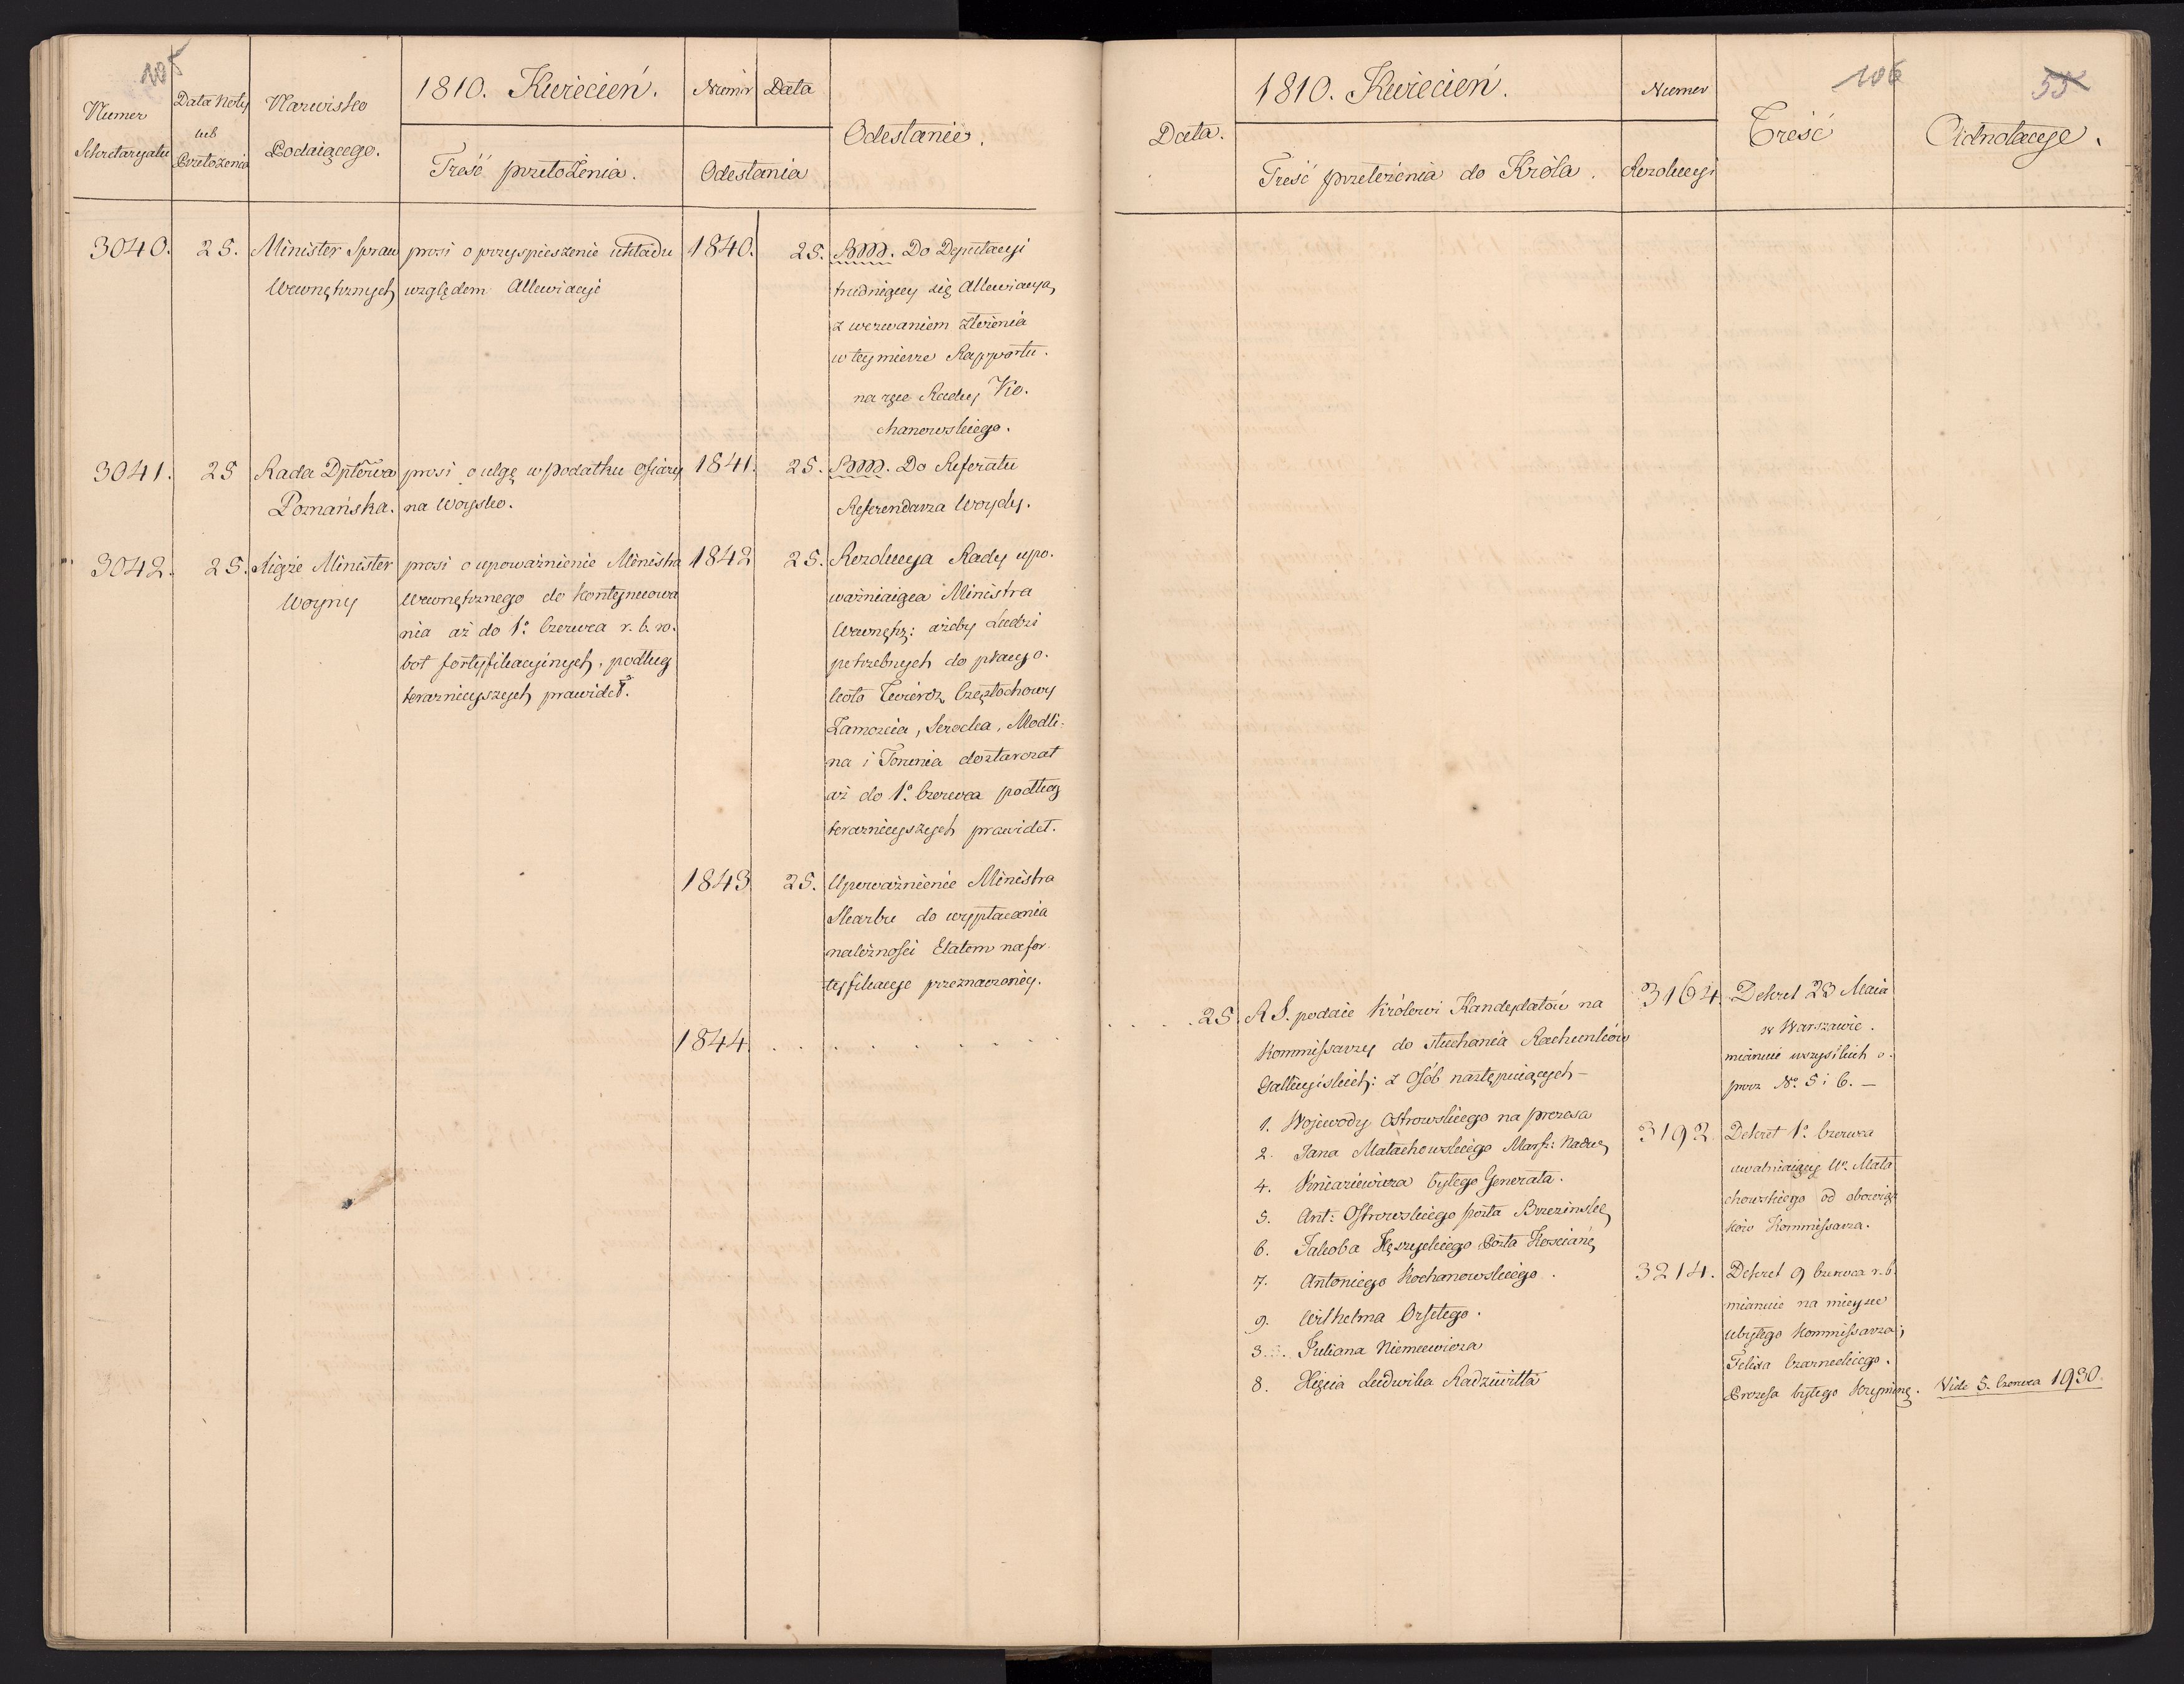 105
Numer
Sekretaryatu
Data Noty
lub
Przełożenia
Nazwisko
Podaiącego.
1810. Kwiecień.
Treść przełożenia.
Numer
Data
Odesłania
Odesłanie.
3040.
25.
Minister Spraw
Wewnętrznych
prosi o przyspieszenie układu
względem Allewiacyi
1840.
25.
BM. Do Deputacyi
trudniącey się Allewiacyą,
z wezwaniem złożenia
w tey mierze Rapportu.
na ręce Radcy Ko.
chanowskiego.
3041.
25
Rada Dptowa
Poznańska.
prosi o ulgę w podatku ofiary
na Woysko.
1841.
25.
BM. Do Referatu
Referendarza Woydy.
3042.
25.
Xiąże Minister
Woyny
prosi o upoważnienie Ministra
Wewnętrznego do kontynuowa
nia aż do 1o. Czerwca r. b. ro.
bot fortyfikacyinych, podług
teraznieyszych prawideł.
1842
25.
Rezolucya Rady upo.
ważniaiąca Ministra
Wewnętrz: ażeby Ludzi
potrzebnych do pracy o.
koło Twierdz Częstochowy
Zamościa, Serocka, Modli.
na i Torunia dostarczał
aż do 1o. Czerwca podług
teraznieyszych prawideł.
1843
25.
Upoważnienie Ministra
Skarbu do wypłacania
należności Etatem na for
tyfikacye przeznaczoney.
1844.
106
55
Data.
1810. Kwiecień.
Treść przełożenia do Króla.
Numer
Rezolucyi
Treść
Adnotacye.
25.
R S. podaie Królowi Kandydatów na
Kommissarzy do słuchania Rachunków
Gallicyiskich: z Osób następuiących –
1. Wojewody Ostrowskiego na prezesa
2. Jana Małachowskiego Marsz: Nadw
4. Kniaziewicza byłego Generała.
5. Ant: Ostrowskiego posła Brzezinske
6. Jakoba Kęszyckiego Posła Kościanę
7. Antoniego Kochanowskiego.
9. Wilhelma Orsetego.
3. Juliana Niemcewicza
8. Xięcia Ludwika Radziwiłła
3164.
Dekret 23 Maia
w Warszawie.
mianuie wszystkich o.
procz No. 5 i 6. –
3192.
Dekret 1o. Czerwca
uwalniaiący Wo. Mała
chowskiego od obowiąz
ków Kommissarza.
3214.
Dekret 9 Czerwca r. b.
mianuie na mieysce
ubyłego Kommissarza;
Felixa Czarneckiego.
Prezesa byłego Krymine.
Vide 5. Czerwca 1930.